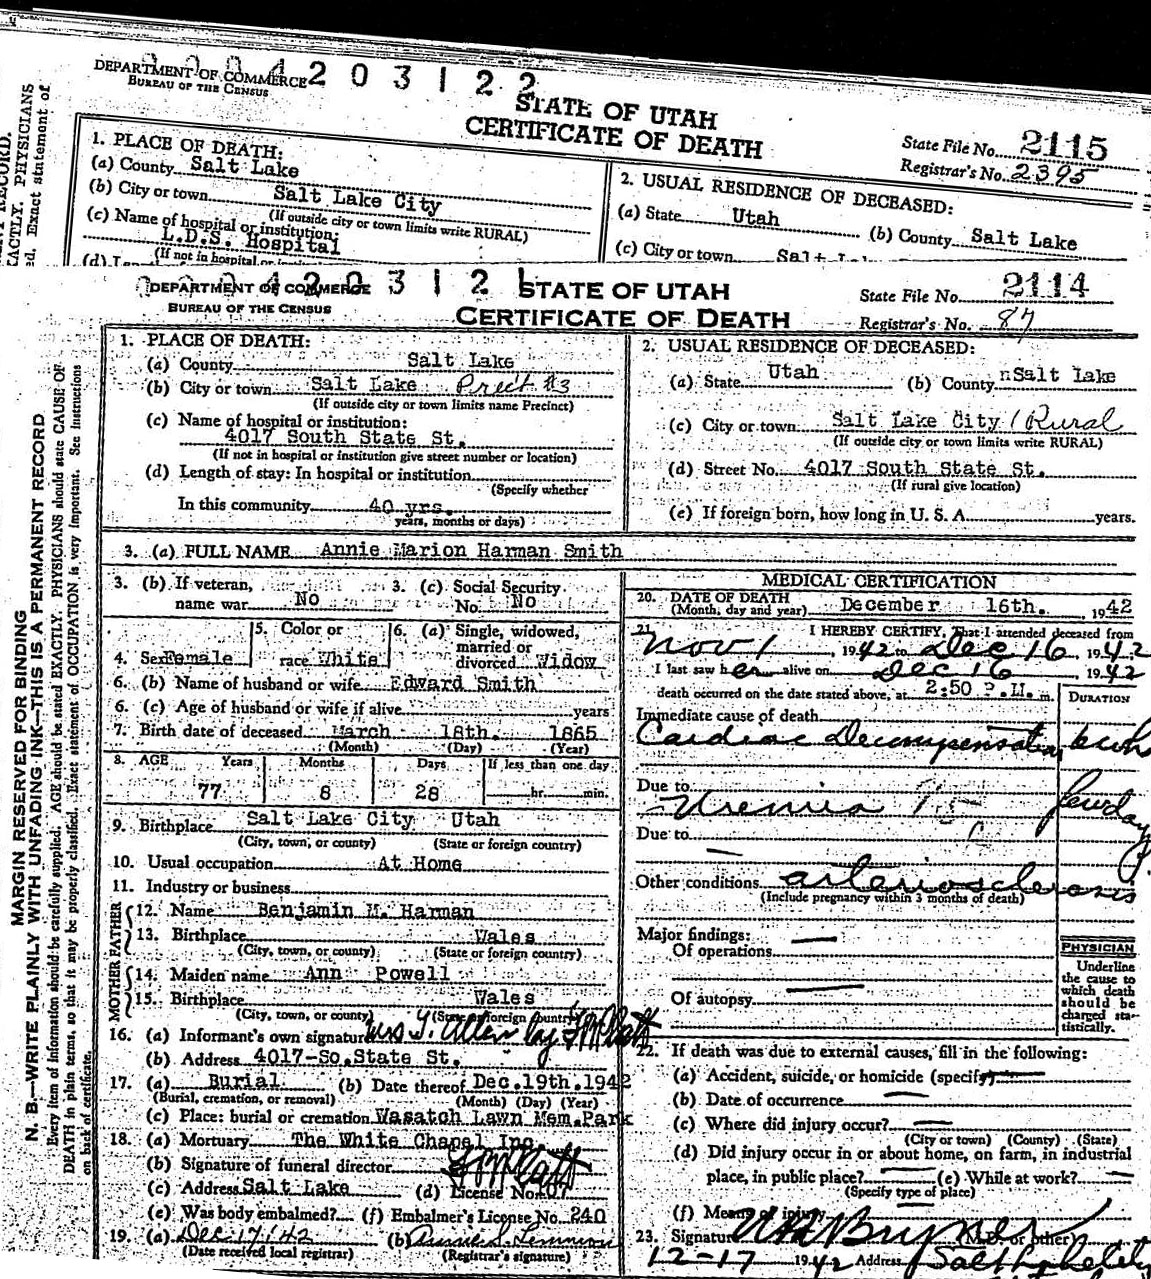 DEPARTMENT OF COMMERCE 4 2 0 3 1 2 2
BUREAU OF THE CENSUS
STATE OF UTAH
CERTIFICATE OF DEATH
State File No. 2115
Registrar's No. 2395
RECORD.
EXACTLY. PHYSICIANS
Exact statement of
1. PLACE OF DEATH:
(a) County Salt Lake
(b) City or town Salt Lake City
(If outside city or town limits write RURAL)
(c) Name of hospital or institution:
L.D.S. Hospital
(If not in hospital or
2. USUAL RESIDENCE OF DECEASED:
(a) State Utah (b) County Salt Lake
(c) City or town
DEPARTMENT OF COMMERCE 4 2 0 3 1 2 1
BUREAU OF THE CENSUS
STATE OF UTAH
CERTIFICATE OF DEATH
State File No. 2114
Registrar's No. 87
MARGIN RESERVED FOR BINDING
N. B.—WRITE PLAINLY WITH UNFADING INK—THIS IS A PERMANENT RECORD
Every item of information should be carefully supplied. AGE should be stated EXACTLY. PHYSICIANS should state CAUSE OF
DEATH in plain terms, so that it may be properly classified. Exact statement of OCCUPATION is very important. See Instructions
on back of certificate.
1. PLACE OF DEATH:
(a) County Salt Lake
(b) City or town Salt Lake Prect #3
(If outside city or town limits name Precinct)
(c) Name of hospital or institution:
4017 South State St.
(If not in hospital or institution give street number or location)
(d) Length of stay: In hospital or institution
(Specify whether
In this community 40 yrs.
years, months or days)
2. USUAL RESIDENCE OF DECEASED:
(a) State Utah (b) County Salt Lake
(c) City or town Salt Lake City / Rural
(If outside city or town limits write RURAL)
(d) Street No. 4017 South State St.
(If rural give location)
(e) If foreign born, how long in U. S. A. years.
3. (a) FULL NAME Annie Marion Harman Smith
3. (b) If veteran, 3. (c) Social Security
name war No No. No
4. Sex Female 5. Color or race White 6. (a) Single, widowed, married or divorced Widow
6. (b) Name of husband or wife Edward Smith
6. (c) Age of husband or wife if alive years
7. Birth date of deceased March 18th. 1865
(Month) (Day) (Year)
8. AGE Years Months Days If less than one day
77 8 28 hr. min.
9. Birthplace Salt Lake City Utah
(City, town, or county) (State or foreign country)
10. Usual occupation At Home
11. Industry or business
FATHER
12. Name Benjamin M. Harman
13. Birthplace Wales
(City, town, or county) (State or foreign country)
MOTHER
14. Maiden name Ann Powell
15. Birthplace Wales
(City, town, or county) (State or foreign country)
16. (a) Informant's own signature Mrs
(b) Address 4017-So.State St.
17. (a) Burial (b) Date thereof Dec.19th.1942
(Burial, cremation, or removal) (Month) (Day) (Year)
(c) Place: burial or cremation Wasatch Lawn Mem.Park
18. (a) Mortuary The White Chapel Inc.
(b) Signature of funeral director
(c) Address Salt Lake (d) License No.
(e) Was body embalmed? (f) Embalmer's License No. 240
19. (a) Dec 17/42 (b)
(Date received local registrar) (Registrar's signature)
MEDICAL CERTIFICATION
20. DATE OF DEATH
(Month, day and year) December 16th. , 1942
21. I HEREBY CERTIFY, That I attended deceased from
Nov 1 , 1942 to Dec 16 , 1942
I last saw her alive on Dec 16 , 1942
death occurred on the date stated above, at 2:50 P.M. m. DURATION
Immediate cause of death
Cardiac Decompensation
Due to
Uremia few days
Due to
Other conditions arteriosclerosis
(Include pregnancy within 3 months of death)
Major findings:
Of operations
Of autopsy
PHYSICIAN
Underline
the cause to
which death
should be
charged sta-
tistically.
22. If death was due to external causes, fill in the following:
(a) Accident, suicide, or homicide (specify)
(b) Date of occurrence
(c) Where did injury occur?
(City or town) (County) (State)
(d) Did injury occur in or about home, on farm, in industrial
place, in public place? (e) While at work?
(Specify type of place)
(f) Means of injury
23. Signature (M.D. or other)
12-17 1942 Address Salt Lake City